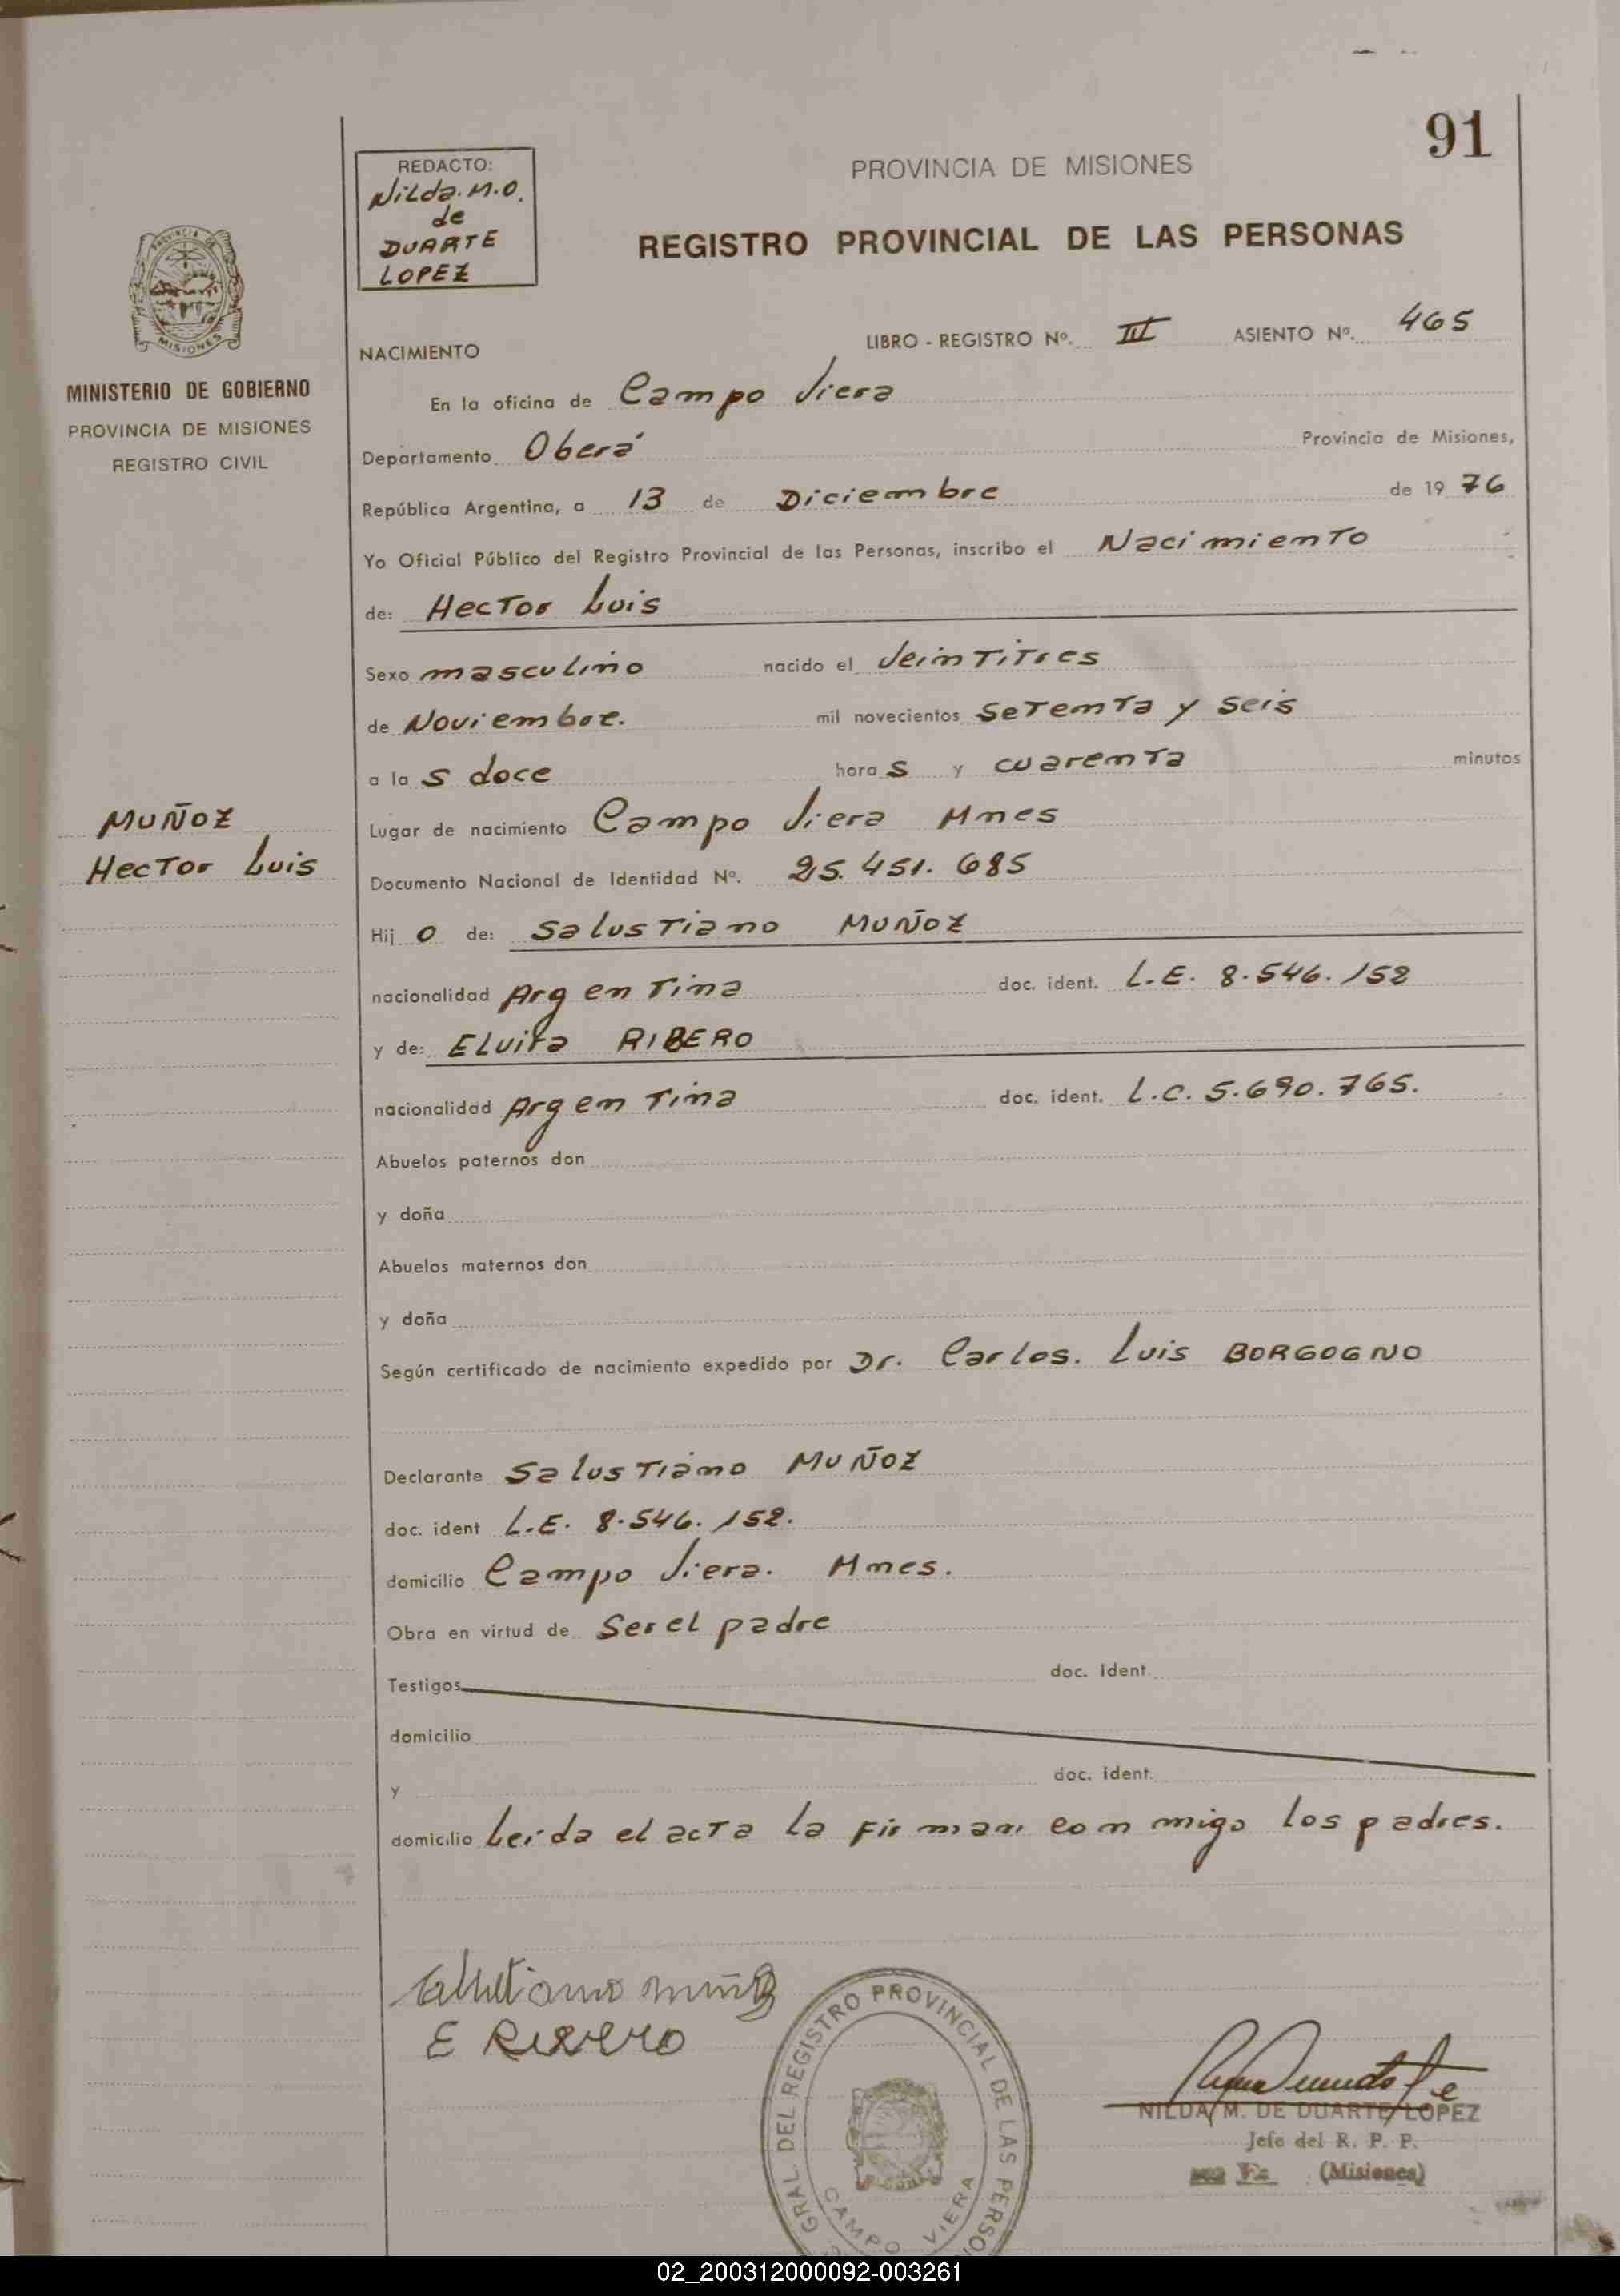 91
REDACTO:
Nilda. M.O.
de
DUARTE
LOPEZ
PROVINCIA DE MISIONES
REGISTRO PROVINCIAL DE LAS PERSONAS
PROVINCIA DE
MISIONES
MINISTERIO DE GOBIERNO
PROVINCIA DE MISIONES
REGISTRO CIVIL
NACIMIENTO
LIBRO - REGISTRO Nº. III ASIENTO Nº. 465
En la oficina de Campo Viera
Departamento Oberá Provincia de Misiones,
República Argentina, a 13 de Diciembre de 19 76
Yo Oficial Público del Registro Provincial de las Personas, inscribo el Nacimiento
de: Hector Luis
Sexo masculino nacido el Veintitres
de Noviembre. mil novecientos Setenta y seis
a la s doce hora s y cuarenta minutos
MUÑOZ
Hector Luis
Lugar de nacimiento Campo Viera Mnes
Documento Nacional de Identidad Nº. 25.451.685
Hij o de: Salustiano MUÑOZ
nacionalidad Argentina doc. ident. L.E. 8.546.152
y de: ELvira RIBERO
nacionalidad Argentina doc. ident. L.C. 5.690.765.
Abuelos paternos don
y doña
Abuelos maternos don
y doña
Según certificado de nacimiento expedido por Dr. Carlos. Luis BORGOGNO
Declarante Salustiano MUÑOZ
doc. ident L.E. 8.546.152.
domicilio Campo Viera. Mnes.
Obra en virtud de Ser el padre
Testigos doc. Ident.
domicilio
y doc. ident.
domicilio Leida el acta la firman conmigo los padres.
E Ribero
GRAL. DEL REGISTRO PROVINCIAL DE LAS PERSO
CAMPO VIERA
NILDA M. DE DUARTE LOPEZ
Jefe del R. P. P.
(Misiones)
02_200312000092-003261